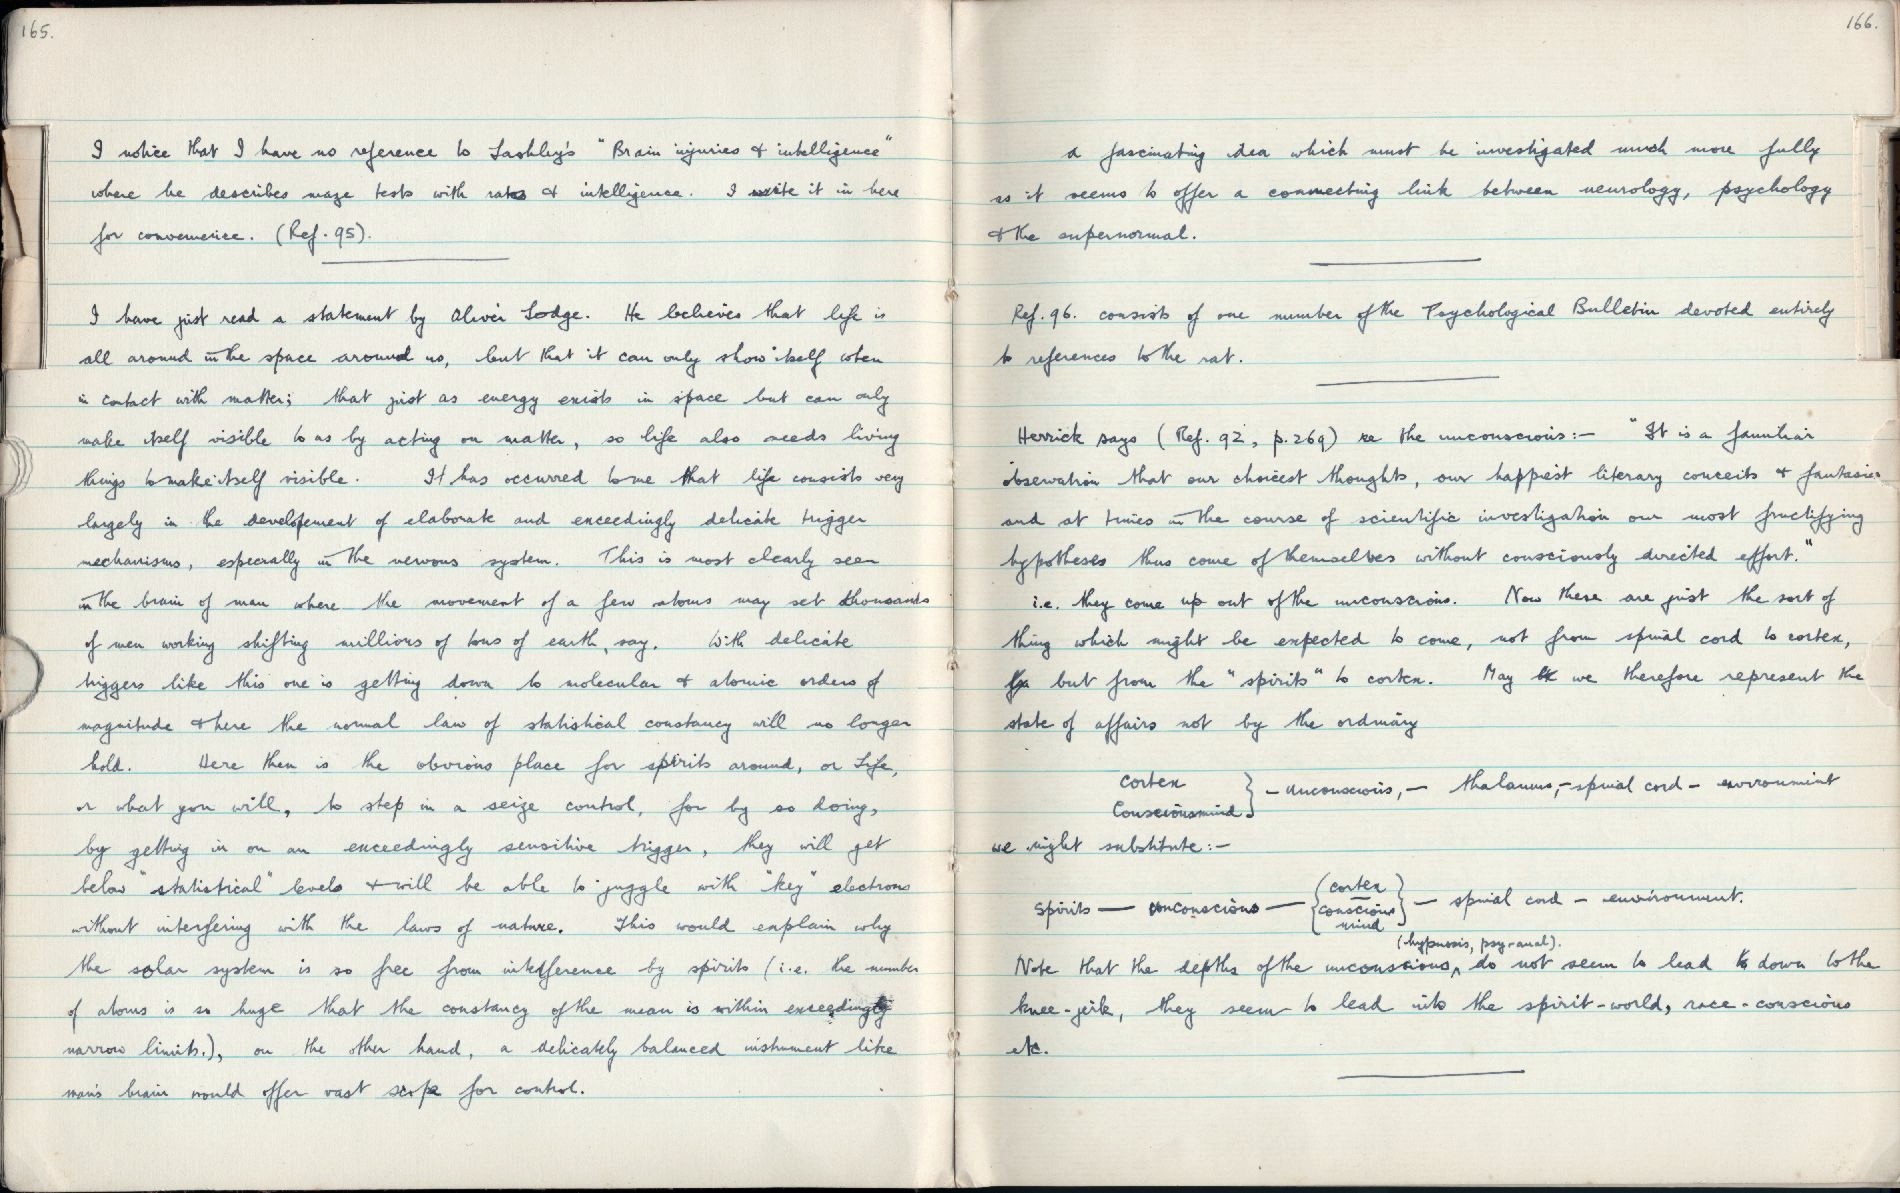 165.
I notice that I have no reference to Lashley's "Brain injuries & intelligence"
where he describes maze tests with rats & intelligence. I write it in here
for convenience. (Ref. 95).
I have just read a statement by Oliver Lodge. He believes that life is
all around in the space around us, but that it can only show itself when
in contact with matter; that just as energy exists in space but can only
make itself visible to us by acting on matter, so life also needs living
things to make itself visible. It has occurred to me that life consists very
largely in the developement of elaborate and exceedingly delicate trigger
mechanisms, especially in the nervous system. This is most clearly seen
in the brain of man where the movement of a few atoms may set thousands
of men working shifting millions of tons of earth, say. With delicate
triggers like this one is getting down to molecular & atomic orders of
magnitude & here the normal law of statistical constancy will no longer
hold. Here then is the obvious place for spirits around, or Life,
or what you will, to step in a seize control, for by so doing,
by getting in on an exceedingly sensitive trigger, they will get
below "statistical" levels & will be able to juggle with "key" electrons
without interfering with the laws of nature. This would explain why
the solar system is so free from interference by spirits (i.e. the number
of atoms is so huge that the constancy of the mean is within exceedingly
narrow limits.), on the other hand, a delicately balanced instrument like
man's brain would offer vast scope for control.
166.
a fascinating idea which must be investigated much more fully
as it seems to offer a connecting link between neurology, psychology
& the supernormal.
Ref. 96. consists of one number of the Psychological Bulletin devoted entirely
to references to the rat.
Herrick says (Ref. 92, p.269) re the unconscious:- "It is a familiar
observation that our choicest thoughts, our happiest literary conceits & fantasies
and at times in the course of scientific investigation our most fructifying
hypotheses thus come of themselves without consciously directed effort."
i.e. they come up out of the unconscious. Now these are just the sort of
thing which might be expected to come, not from spinal cord to cortex,
but from the "spirits" to cortex. May we therefore represent the
state of affairs not by the ordinary
cortex
Conscious mind } - unconscious, - thalamus, - spinal cord - environment
we might substitute:-
Spirits - unconscious - { cortex
conscious
mind } - spinal cord - environment.
(hypnosis, psy-anal).
Note that the depths of the unconscious, do not seem to lead down to the
knee-jerk, they seem to lead into the spirit-world, race-conscious
etc.